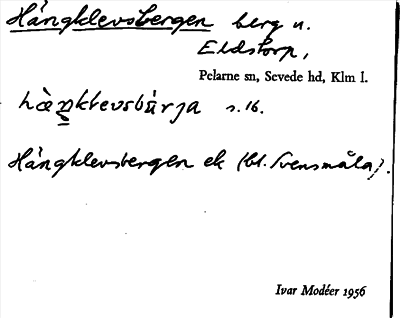 Hängklevsbergen berg n.
Eldstorp,
Pelarne sn, Sevede hd, Klm l.
s. 16.
Hängklevsbergen ek (bl. Svensmåla).
Ivar Modéer 1956